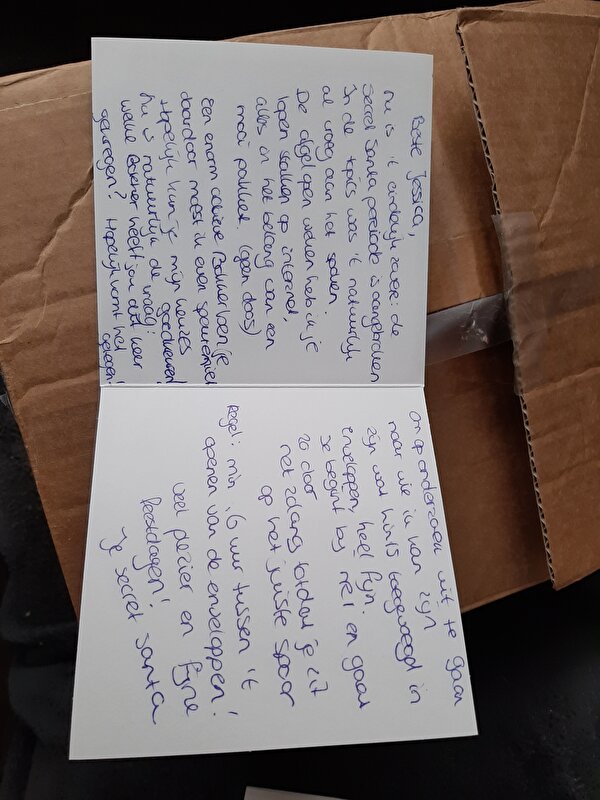 Beste Jessica,
Nu is 't eindelijk zover: de
Secret Santa periode is aangebroken
In de topics was 't natuurlijk
al vroeg aan het spoken.
De afgelopen weken heb ik je
lopen stalken op internet,
alles in het belang van een
mooi pakket. (open doos)
Een enorm actieve Bokker ben je
daardoor moest ik even
Hopelijk kun je mijn keuzes
Nu is natuurlijk de vraag:
welke Bokker heeft jou dit keer
gekregen? Hopelijk komt het
Om op onderzoek uit te gaan
naar wie ik kan zijn
zijn wat hints toegevoegd in
enveloppen, heel fijn.
Je begint bij nr 1 en gaat
zo door
net zolang totdat je zit
op het juiste spoor
Regel: min. 16 uur tussen 't
openen van de enveloppen!
veel plezier en fijne
feestdagen!
Je secret santa